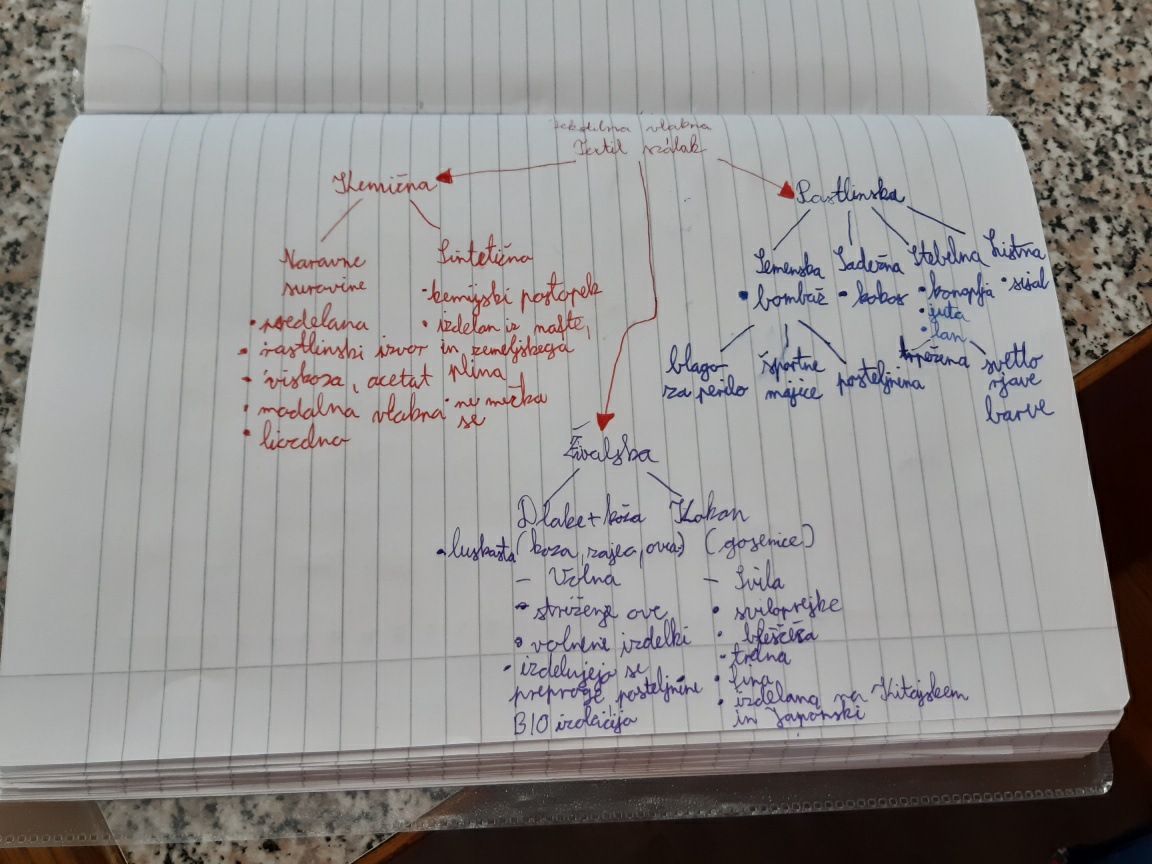 Tekstilna vlakna
Textil szálak
Kemična
Naravne
surovine
• predelana
• rastlinski izvor
• viskoza, acetat
• modalna vlakna
•
Sintetična
• kemijski postopek
• izdelan iz nafte,
in zemeljskega
plina
• ne mečka
se
Rastlinska
Semenska
• bombaž
blago
za perilo
športne
majice
posteljnina
Sadežna
• kokos
Stebelna
• konoplja
• juta
• lan
trpežena
svetlo
rjave
barve
Listna
• sisal
Živalska
Dlake + koža
• luskasta (koza, zajec, ovca)
– Volna
• striženje ovc
• volnene izdelki
• izdelujejo se
preproge posteljnine
BIO izolacija
Kokon
(gosenice)
– Svila
• sviloprejke
• bleščeča
• trdna
• fina
• izdelana na Kitajskem
in Japonski